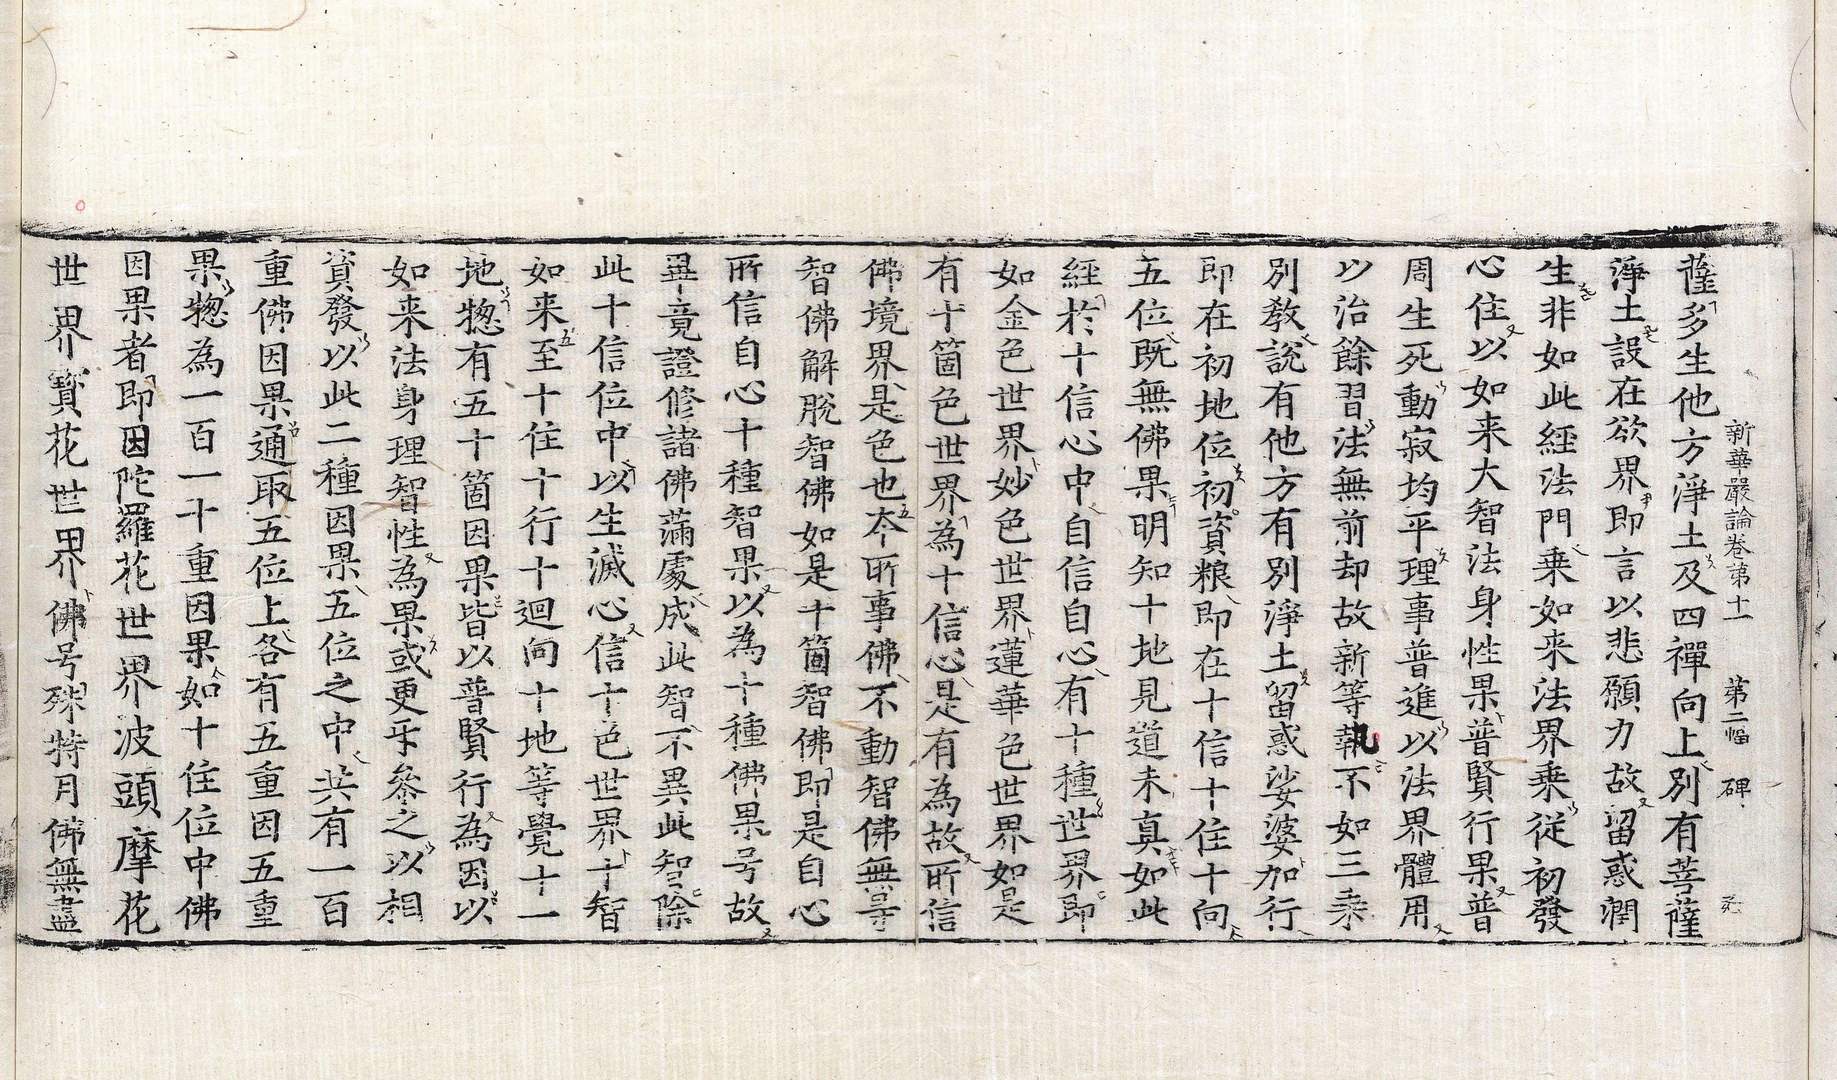 新華嚴論卷第十一　第二幅　碑
薩多生他方淨土及四禪向上別有菩薩
淨土設在欲界即言以悲願力故留惑潤
生非如此經法門乗如来法界乗從初發
心住以如来大智法身性果普賢行果普
周生死動寂均平理事普進以法界體用
以治餘習法無前却故新等執不如三乗
別教說有他方有別淨土留惑娑婆加行
即在初地位初資粮即在十信十住十向
五位既無佛果明知十地見道未真如此
經於十信心中自信自心有十種世界即
如金色世界妙色世界蓮華色世界如是
有十箇色世界為十信心是有為故所信
佛境界是色也夲所事佛不動智佛無㝵
智佛解脫智佛如是十箇智佛即是自心
所信自心十種智果以為十種佛果号故
畢竟證修諸佛滿處成此智不異此智除
此十信位中以生滅心信十色世界十智
如来至十住十行十迴向十地等覺十一
地惣有五十箇因果皆以普賢行為因以
如来法身理智性為果或更㸦叅之以相
資發以此二種因果五位之中共有一百
重佛因果通取五位上各有五重因五重
果惣為一百一十重因果如十住位中佛
因果者即因陀羅花世界波頭摩花
世界寳花世界佛号殊特月佛無盡